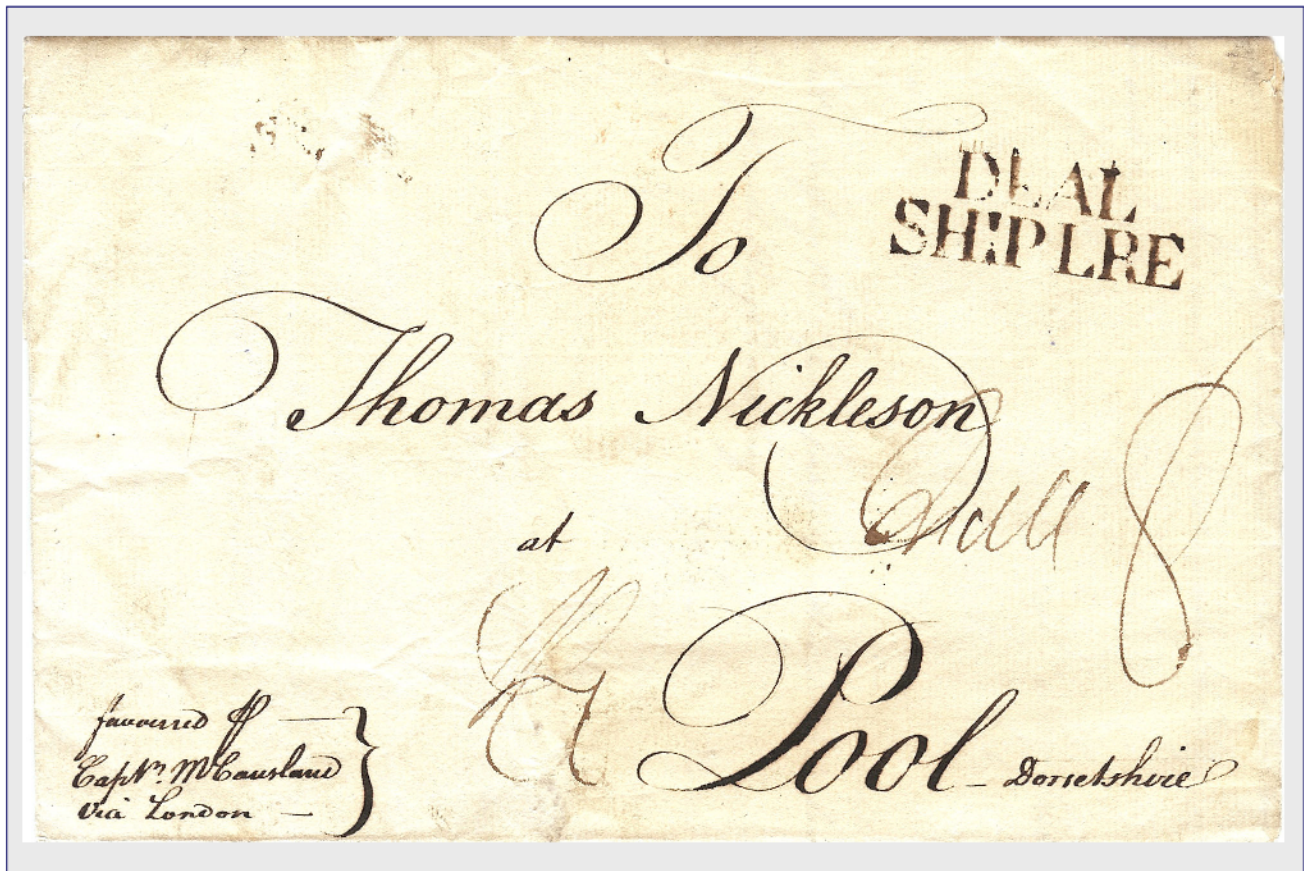 To
DEAL
SHIP LRE
Thomas Nickleson
8
at
Pool - Dorsetshire
favoured ⅌
Captn. McCausland
via London